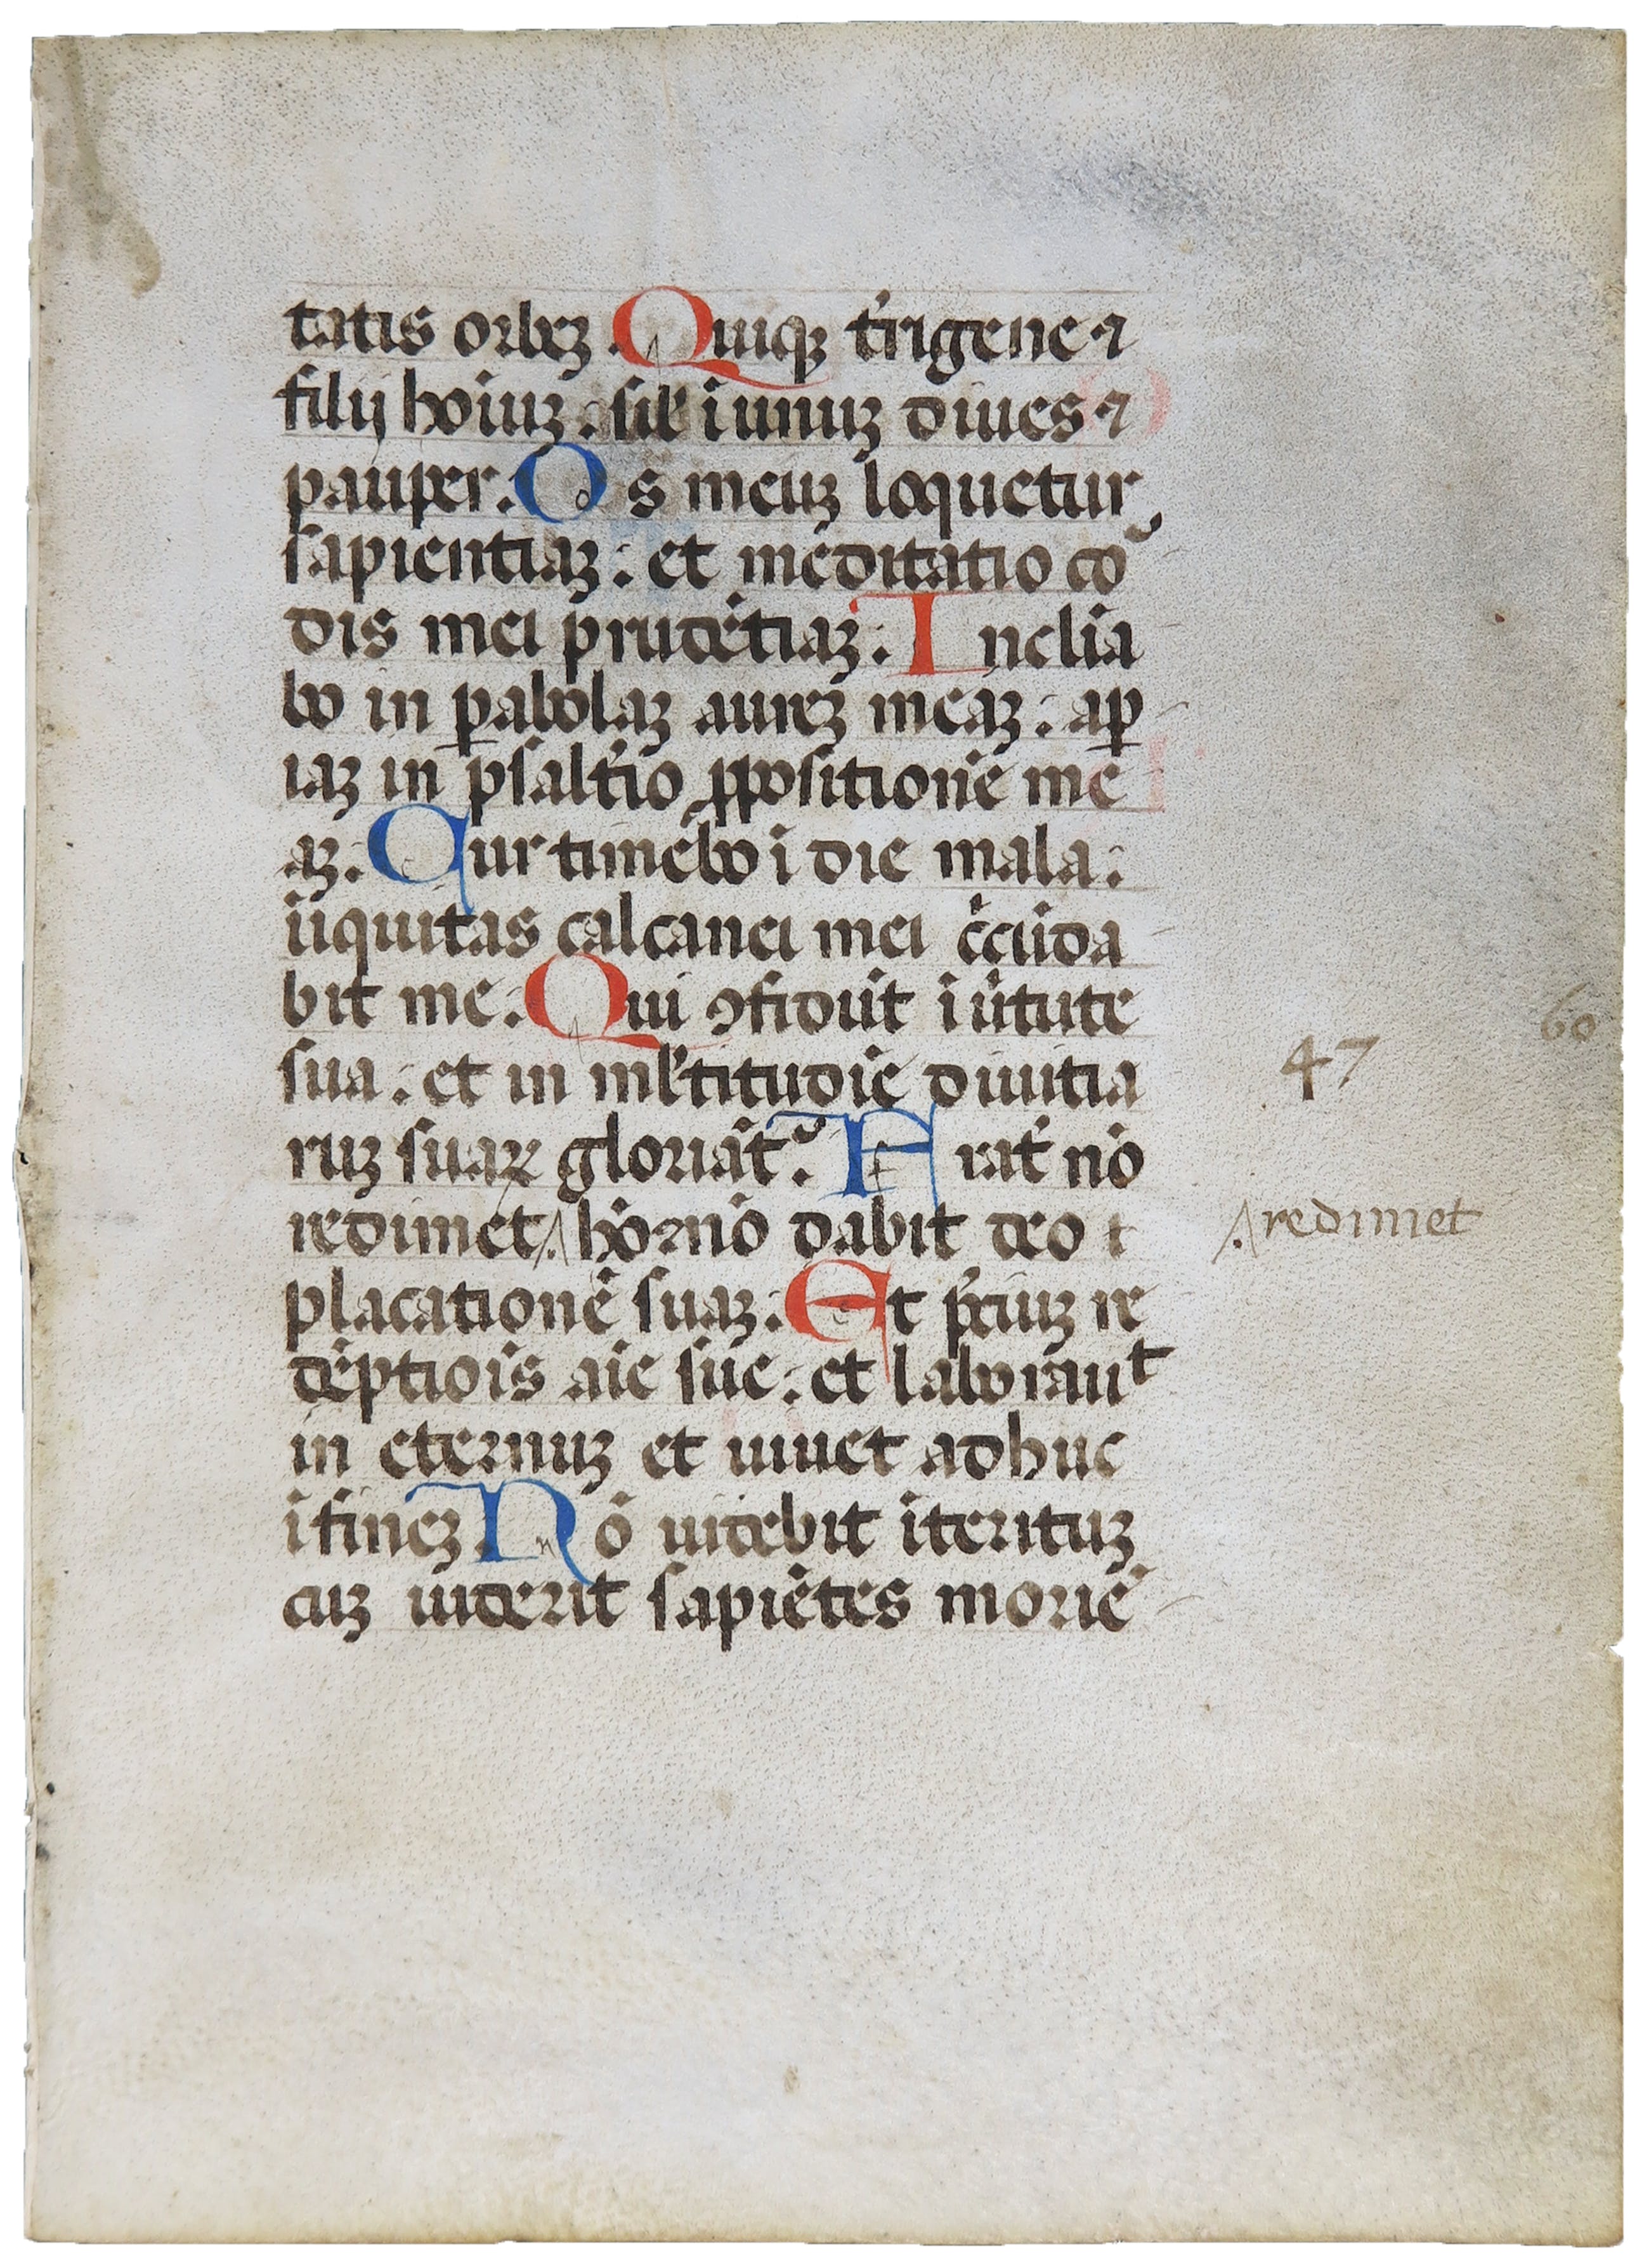 tatis orbeꝫ. Quiqꝫ t'rigene ⁊
filij hoiuꝫ. sil' ī unuꝫ diues ⁊
pauper. Os meuꝫ loquetur
sapientiaꝫ: et meditatio co᷒
dis mei prudētiaꝫ: Incliā
bo in ꝑabolaꝫ aureꝫ meaꝫ: aꝑ
iaꝫ in psalt'io ꝓpositionē me
aꝫ. Cur timebo ī die mala:
iīquitas calcanei mei c̄cūda
bit me. Qui ꝯfidūt ī u'tute
sua: et in ml'titudīe diuitia
ruꝫ suaꝝ gloriāt᷑. Frat' nō
redimet ʌ hō ⁊ nō dabit deo
placationē suaꝫ. Et p'ciuꝫ re
dēptiōis aīe sue: et laborauᵗ
in eternuꝫ et uiuet adhuc
ī fineꝫ. Nō uidebit īterituꝫ
cuꝫ uiderit sapiētes moriē
47
60
ʌ redimet